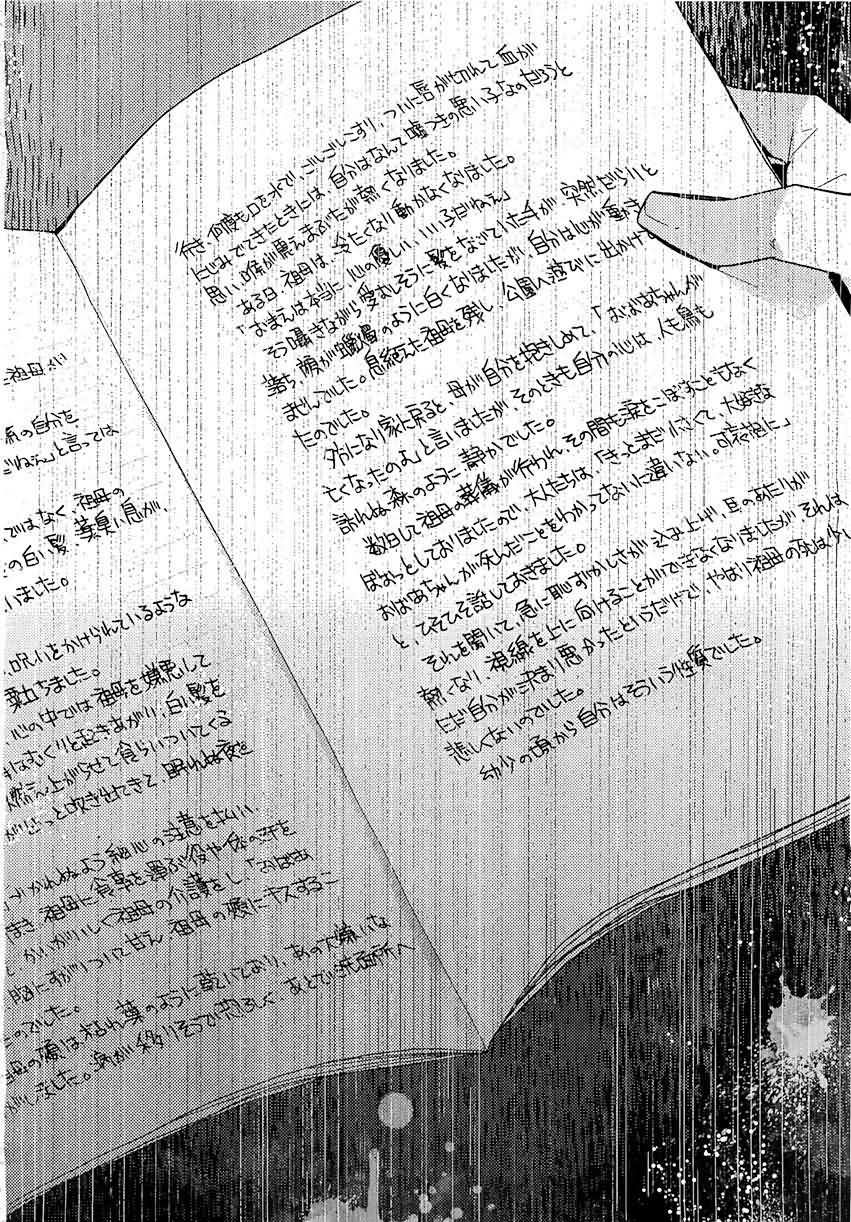 た祖母が
気の自分を
だねえ」と言っては
ではなく、祖母の
の白い髪、薬臭い息が、
いました。
、呪いをかけられているような
粟立ちました。
、心の中では祖母を嫌悪して
はむくりと起きあがり、白い髪を
燃え上がらせて食らいついてくる
がどっと吹き出てきて、眠れぬ夜を
づかれぬよう細心の注意を払い、
祖母に食事を運ぶ役や体の汗を
、かいがいしく祖母の介護をし、「おばあ
、胸にすがりついて甘え、祖母の頬にキスするこ
たのでした。
母の頬は枯れ葉のように乾いており、あの大嫌いな
がしました。病が移りそうで恐ろしく、あとで洗面所へ
行き、何度も口を水で、ごしごしこすり、ついに唇が切れて血が
にじみでてきたときには、自分はなんて嘘つきの悪い子なのだろうと
思い、喉が震えまぶたが熱くなりました。
ある日、祖母は、冷たくなり動かなくなりました。
「おまえは本当に、心の優しい、いい子だねえ」
そう囁きながら愛しむそうに髪をなでていた手が、突然だらりと
落ち、顔が蠟燭のように白くなりましたが、自分は心が動き
ませんでした。息絶えた祖母を残し、公園へ遊びに出かけ
たのでした。
夕方になり家に戻ると、母が自分を抱きしめて、「おばあちゃんが
亡くなったのよ」と言いましたが、そのときも自分の心は、人も鳥も
訪れぬ森のように、静かでした。
数日して祖母の葬儀が行われ、その間も涙をこぼすこともなく
ぼぉっとしておりましたので、大人たちは、「きっとまだ小さくて、大好きな
おばあちゃんが死んだことをわかってないに違いない。可哀想に」
と、ひそひそ話しておきました。
それを聞いて、急に恥ずかしさが込み上げ、耳のあたりが
熱くなり、視線を上に向けることができなくなりましたが、それは
ただ自分が決まり悪かったというだけで、やはり祖母の死は少し
悲しくないのでした。
幼少の頃から自分はそういう性質でした。